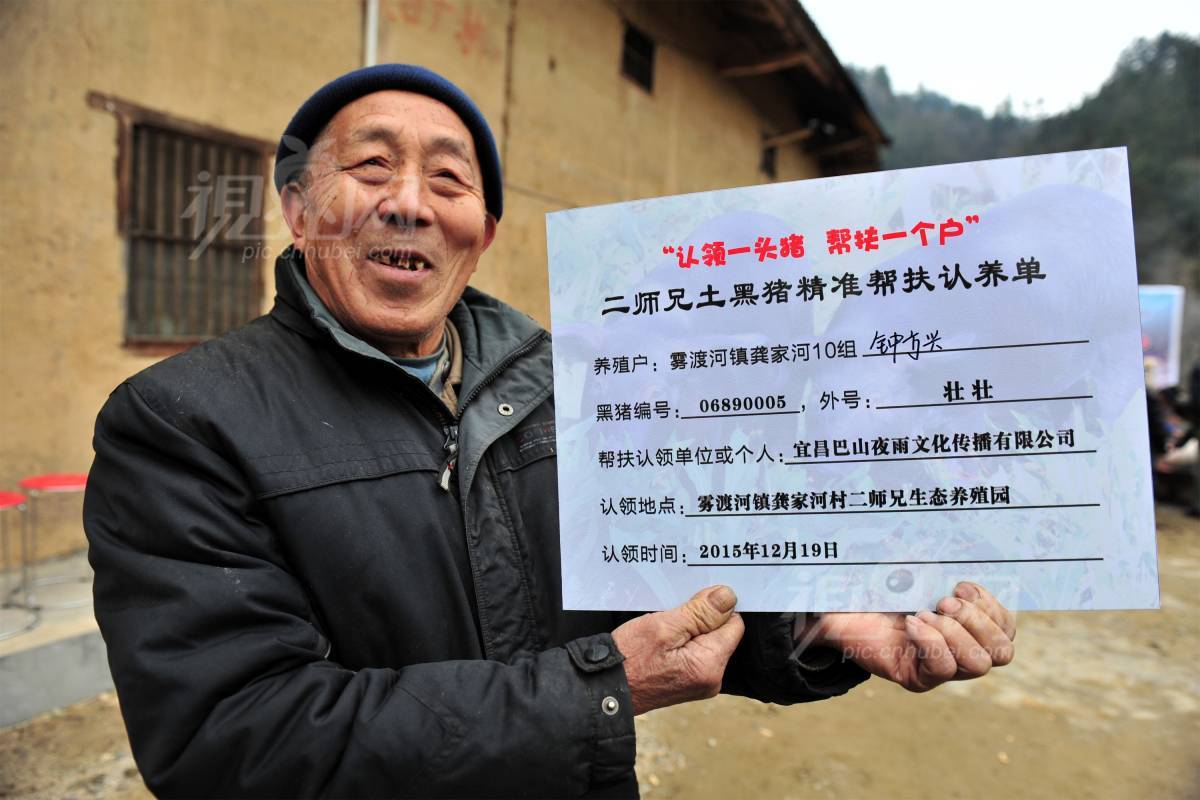 “认领一头猪 帮扶一个户”
二师兄土黑猪精准帮扶认养单
养殖户：雾渡河镇龚家河10组 钟有兴
黑猪编号：06890005，外号：壮壮
帮扶认领单位或个人：宜昌巴山夜雨文化传播有限公司
认领地点：雾渡河镇龚家河村二师兄生态养殖园
认领时间：2015年12月19日
視界网
pic.cnhubei.com
pic.cnhubei.com